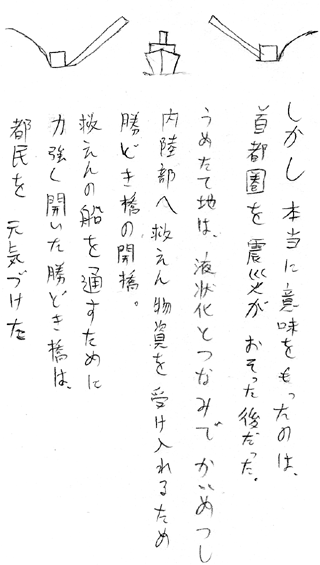 しかし 本当に意味をもったのは、
首都圏を震災が おそった後だった。
うめたて地は、液状化とつなみで かいめつし
内陸部へ救えん物資を受け入れるため
勝どき橋の開橋。
救えんの船を通すために
力強く開いた勝どき橋は、
都民を 元気づけた